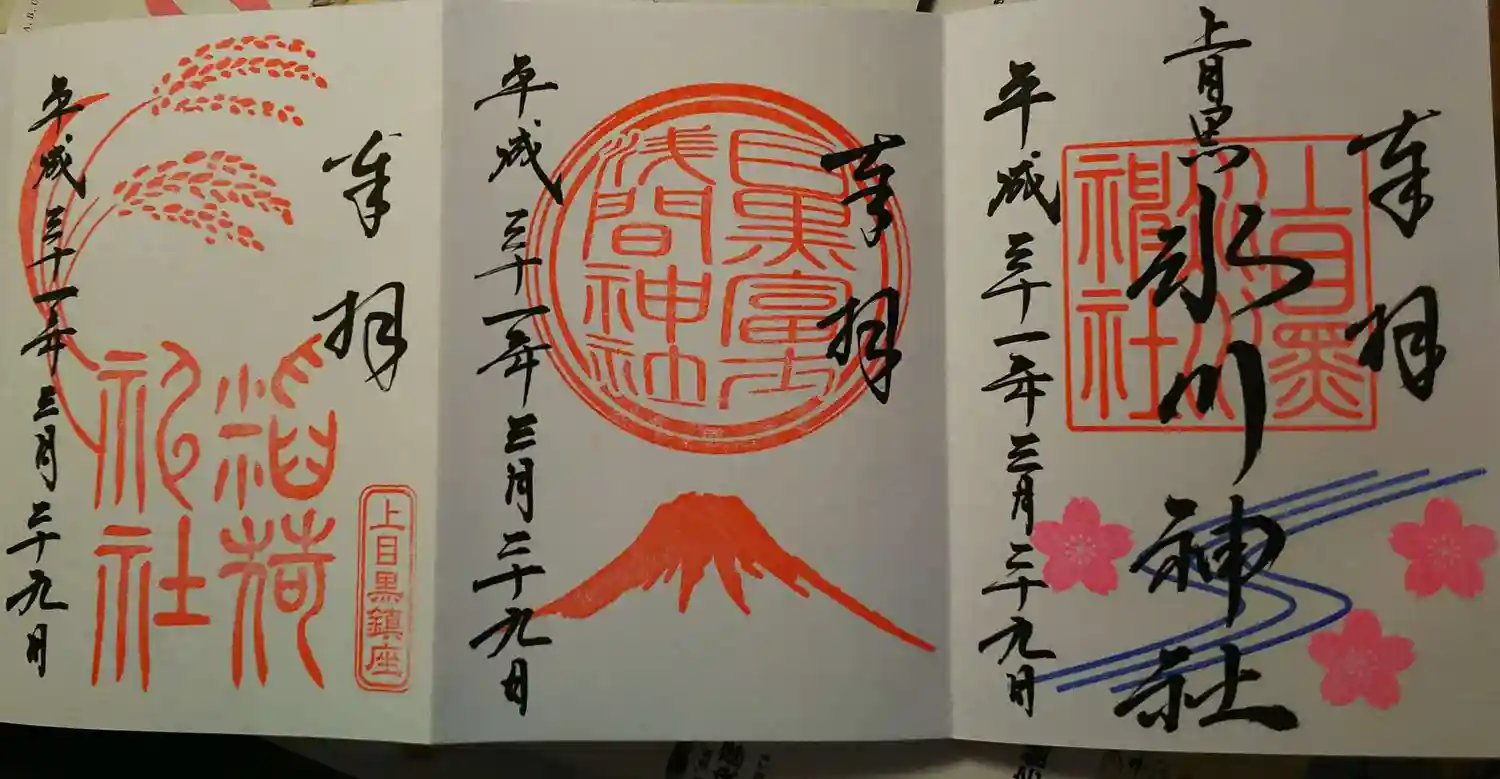 上目黒氷川神社
奉拝
上目黒氷川神社
平成三十一年三月二十九日
奉拝
目黒富士浅間神社
平成三十一年三月二十九日
奉拝
稲荷神社
上目黒鎮座
平成三十一年三月二十九日